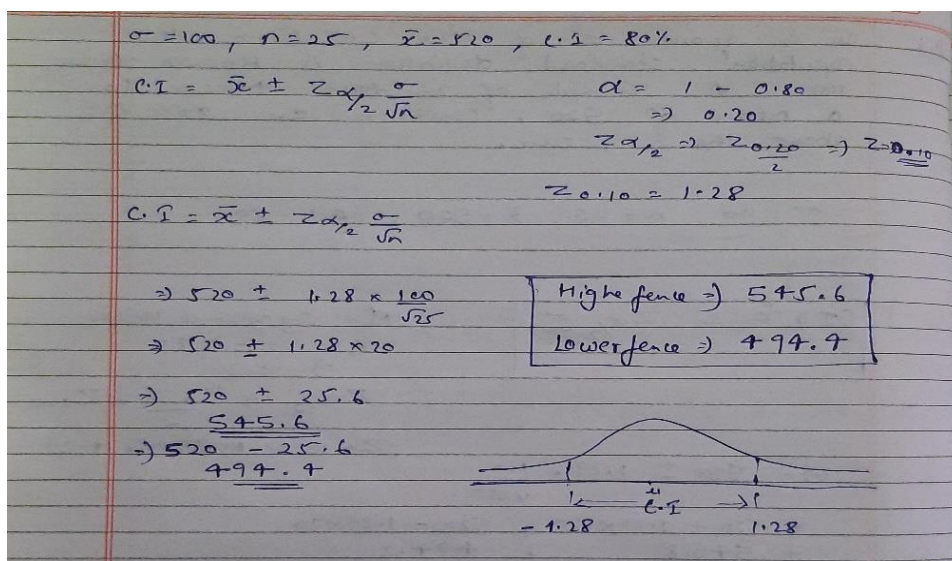 σ = 100, n = 25, x̄ = 520, C.I = 80%
C.I = x̄ ± Zα/2 σ/√n
α = 1 - 0.80
=> 0.20
Zα/2 => Z0.20/2 => Z0.10
Z0.10 = 1.28
C.I = x̄ ± Zα/2 σ/√n
=> 520 ± 1.28 × 100/√25
=> 520 ± 1.28 × 20
=> 520 ± 25.6
545.6
=> 520 - 25.6
494.4
Highe fence => 545.6
Lower fence => 494.4
C.I
- 1.28 1.28